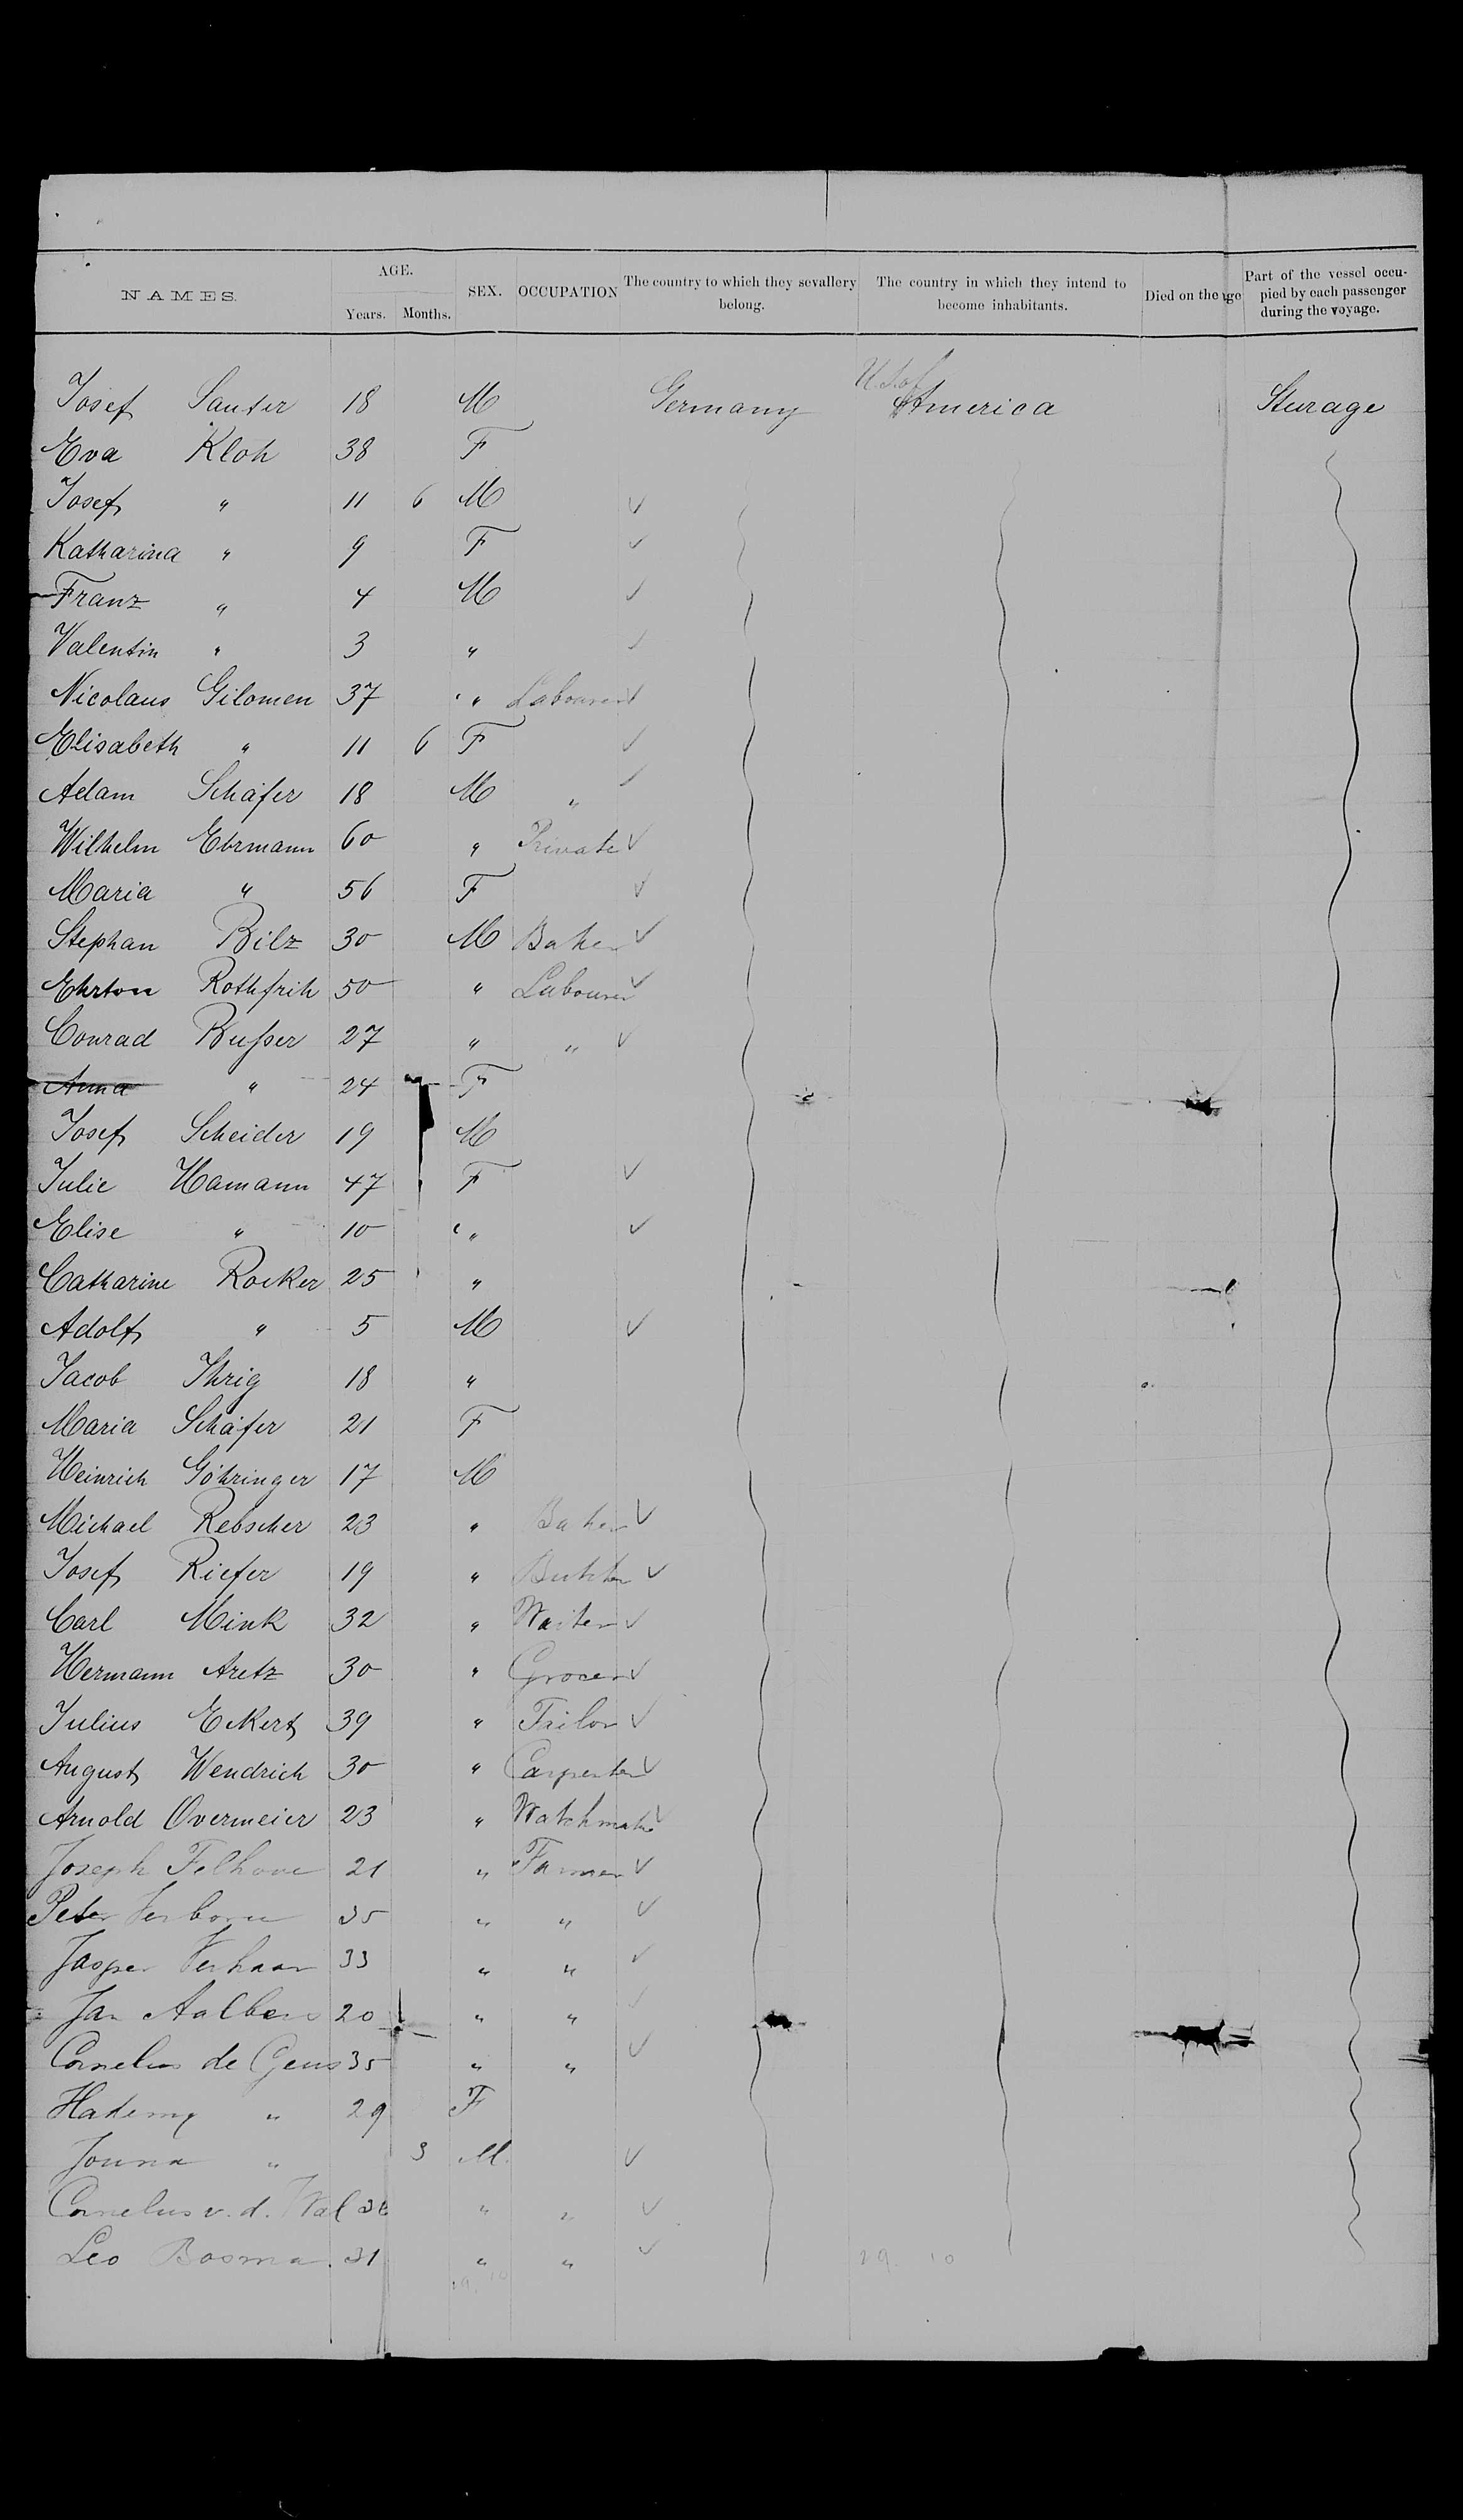 NAMES. AGE. Years. Months. SEX. OCCUPATION The country to which they sevallery belong. The country in which they intend to become inhabitants. Died on the age Part of the vessel occupied by each passenger during the voyage.
U.S. of
Josef Sauter 18 M Germany America Sturage
Eva Kloh 38 F
Josef " 11 6 M ✓
Katharina " 9 F ✓
Franz " 4 M ✓
Valentin " 3 " ✓
Nicolaus Gilomen 37 " Labourer ✓
Elisabeth " 11 6 F ✓
Adam Schäfer 18 M " ✓
Wilhelm Ehrmann 60 " Private ✓
Maria " 56 F ✓
Stephan Bilz 30 M Baker ✓
Ehrton Rothfrih 50 " Labourer ✓
Conrad Bußer 27 " " ✓
Anna " 24 F
Josef Scheider 19 M
Julie Hamann 47 F ✓
Elise " 10 " ✓
Catharine Rocker 25 "
Adolf " 5 M ✓
Jacob Ihrig 18 "
Maria Schäfer 21 F
Heinrich Göhringer 17 M
Michael Rebscher 23 " Baker ✓
Josef Riefer 19 " ✓
Carl Mink 32 " Waiter ✓
Hermann Aretz 30 " Grocer ✓
Julius Eckert 39 " Tailor ✓
August Wendrich 30 " Carpenter ✓
Arnold Overmeier 23 " Watchmaker ✓
Joseph 21 " Farmer ✓
Peter 35 " " ✓
Jasper Verhaar 33 " " ✓
Jan Aalbers 20 " " ✓
Cornelius de Geus 35 " " ✓
" 29 F
" 3 M. ✓
Cornelius v. d. Wal " " ✓
Leo Bosma. 31 " " ✓ 29. 10